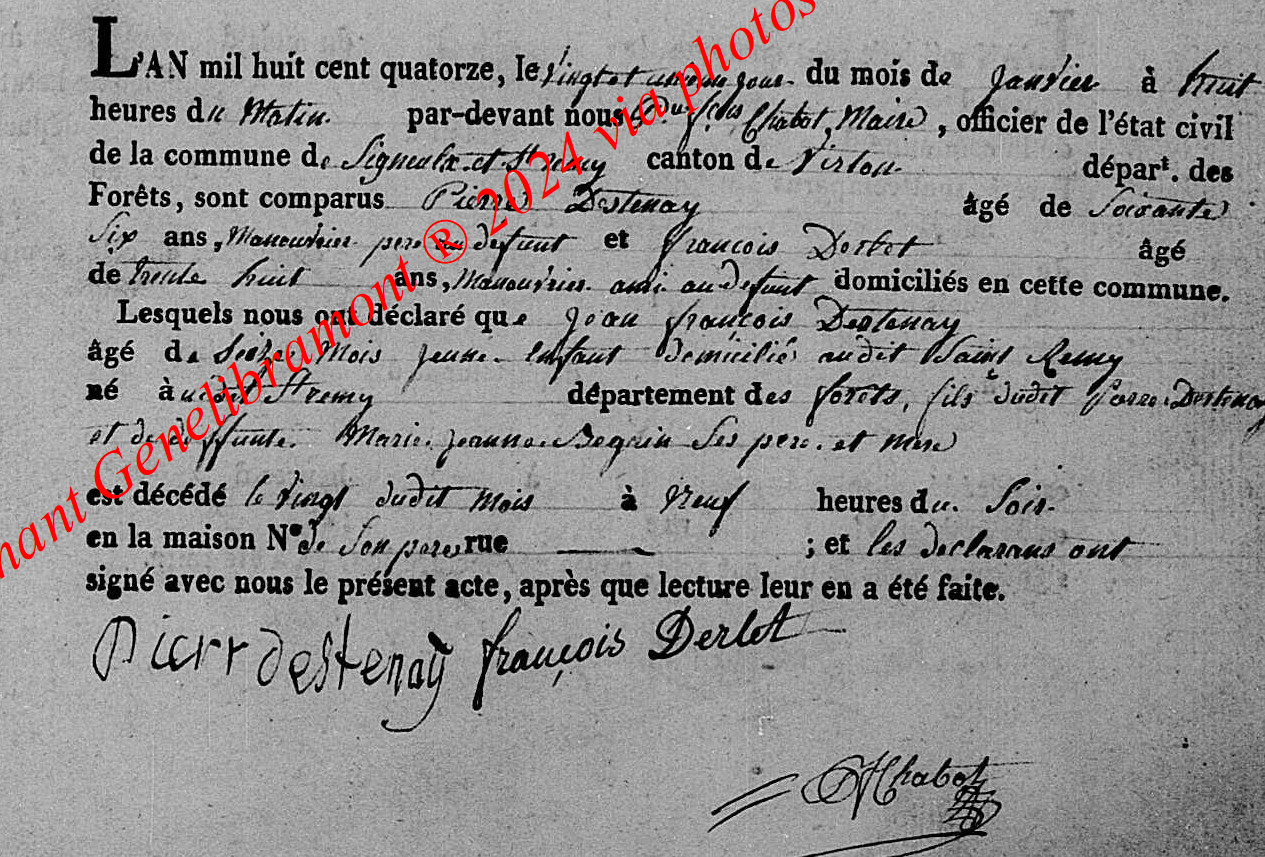 L'AN mil huit cent quatorze, le vingt et unieme jour du mois de Janvier à huit
heures du Matin par-devant nous fçois Chabot, Maire, officier de l'état civil
de la commune de Signeulx et St remy canton de Virton départ. des
Forêts, sont comparus Pierre Destenay âgé de Soixante
Six ans, Manouvrier pere au defunt et françois Derlet âgé
de trente huit ans, Manouvrier ami au defunt domiciliés en cette commune.
Lesquels nous ont déclaré que Jean françois Destenay
âgé de Seize Mois jeune enfant domicilié audit Saint Remy
né à udit St remy département des forêts, fils dudit Pierre Destenay
et de deffunte Marie Jeanne Bequin Ses pere et mere
est décédé le vingt dudit mois à Neuf heures du Soir
en la maison N° de Son pere rue — ; et les declarans ont
signé avec nous le présent acte, après que lecture leur en a été faite.
Pierr destenay françois Derlet
Chabot
nant Genelibramont ® 2024 via photos